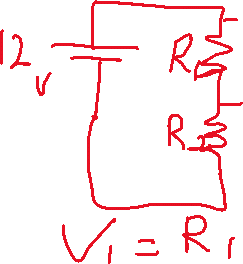 12
v
R
R
V1 = R1